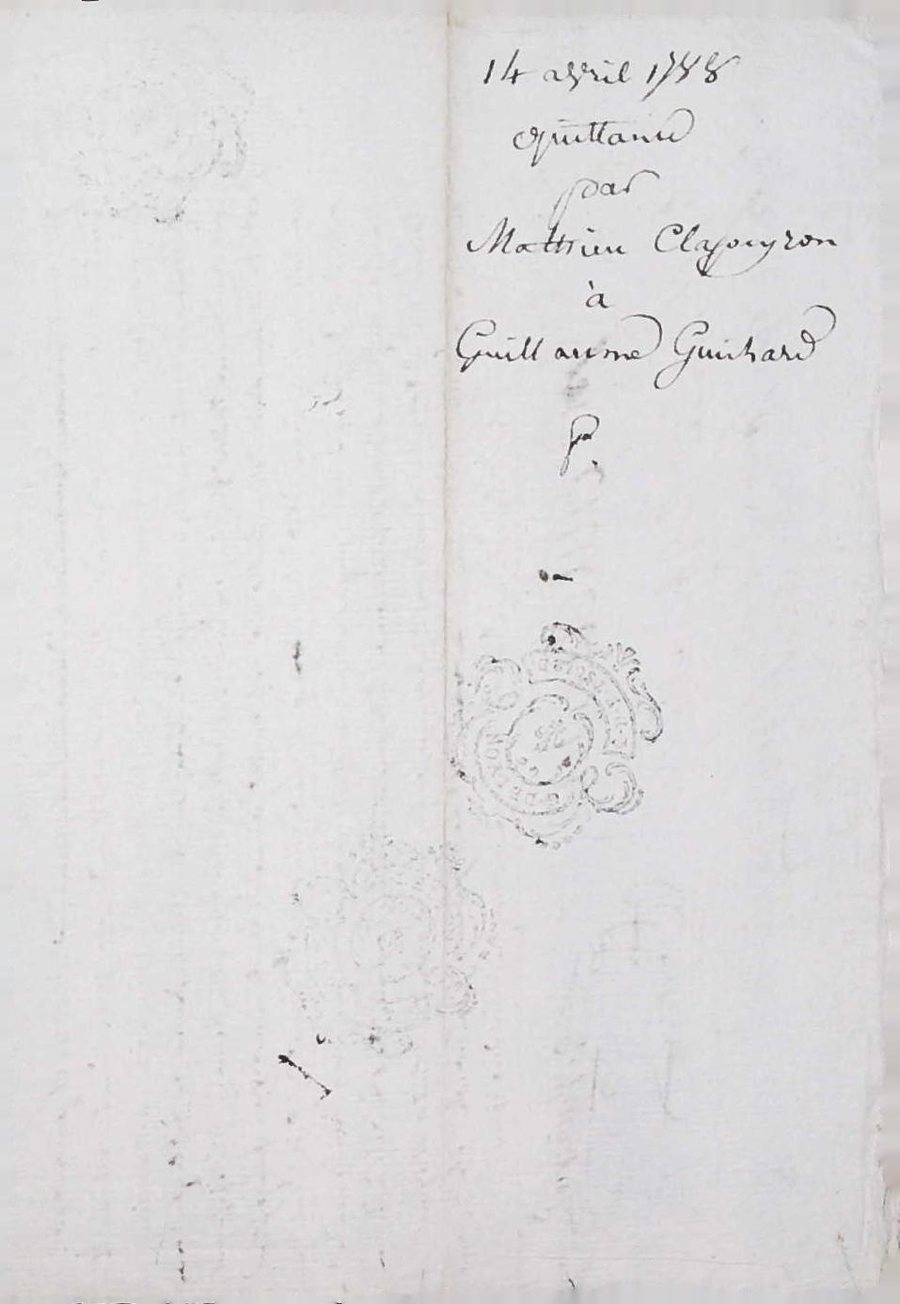 14 avril 1788
Quittance
par
Mathieu Clapeyron
à
Guillaume Guichard
P.
G. DE LYON